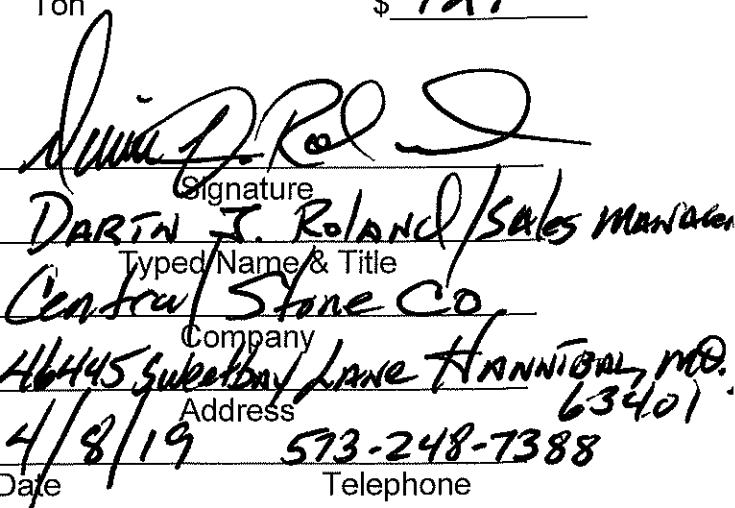 Ton $
Signature
DARIN J. Roland/Sales Manager
Typed Name & Title
Central Stone Co
Company
46445 Sweetbay Lane Hannibal, MO.
63401
Address
4/8/19 573-248-7388
Date Telephone